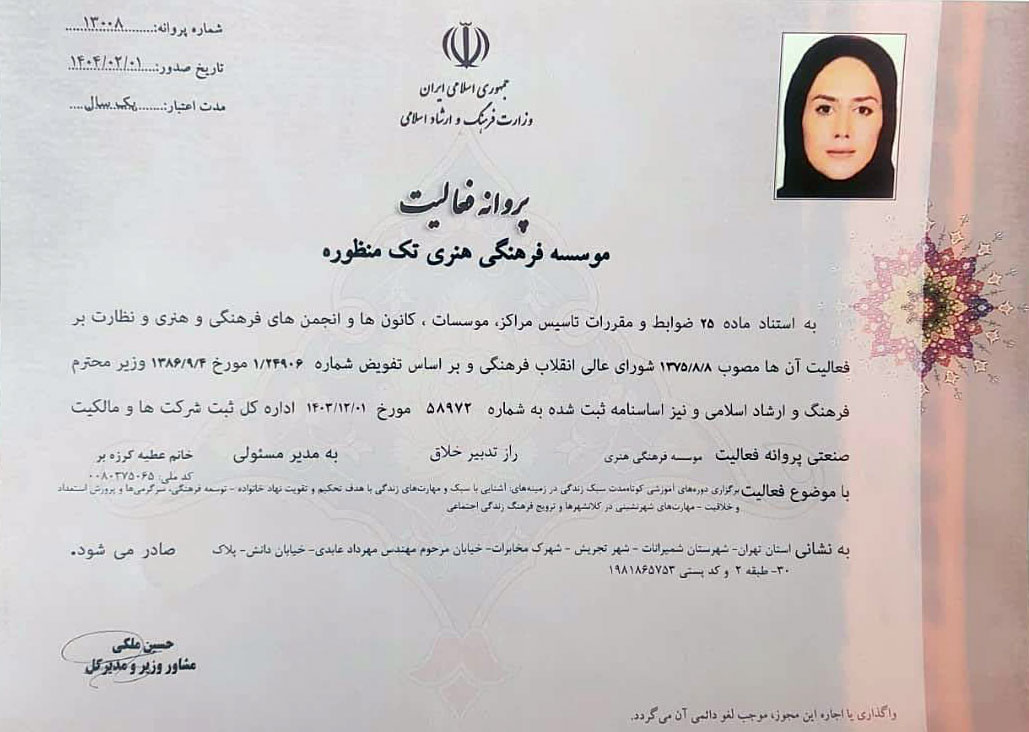 شماره پروانه:.........۱۳۰۰۸.........
تاریخ صدور:....۱۴۰۴/۰۲/۰۱....
مدت اعتبار:........یک سال....
جمهوری اسلامی ایران
وزارت فرهنگ و ارشاد اسلامی
پروانه فعالیت
موسسه فرهنگی هنری تک منظوره
به استناد ماده ۲۵ ضوابط و مقررات تاسیس مراکز، موسسات ، کانون ها و انجمن های فرهنگی و هنری و نظارت بر
فعالیت آن ها مصوب ۱۳۷۵/۸/۸ شورای عالی انقلاب فرهنگی و بر اساس تفویض شماره ۱/۲۴۹۰۶ مورخ ۱۳۸۶/۹/۴ وزیر محترم
فرهنگ و ارشاد اسلامی و نیز اساسنامه ثبت شده به شماره ۵۸۹۷۲ مورخ ۱۴۰۳/۱۲/۰۱ اداره کل ثبت شرکت ها و مالکیت
صنعتی پروانه فعالیت موسسه فرهنگی هنری راز تدبیر خلاق به مدیر مسئولی خانم عطیه کرزه بر
کد ملی: ۰۰۸۰۳۷۵۰۶۵
با موضوع فعالیت برگزاری دوره‌های آموزشی کوتاه‌مدت سبک زندگی در زمینه‌های: آشنایی با سبک و مهارت‌های زندگی با هدف تحکیم و تقویت نهاد خانواده - توسعه فرهنگی، سرگرمی‌ها و پرورش استعداد
و خلاقیت - مهارت‌های شهرنشینی در کلانشهرها و ترویج فرهنگ زندگی اجتماعی
به نشانی استان تهران- شهرستان شمیرانات - شهر تجریش - شهرک مخابرات- خیابان مرحوم مهندس مهرداد عابدی- خیابان دانش- پلاک صادر می شود.
۳۰- طبقه ۲ و کد پستی ۱۹۸۱۸۶۵۷۵۳
حسین ملکی
مشاور وزیر و مدیر کل
واگذاری یا اجاره این مجوز، موجب لغو دائمی آن می‌گردد.